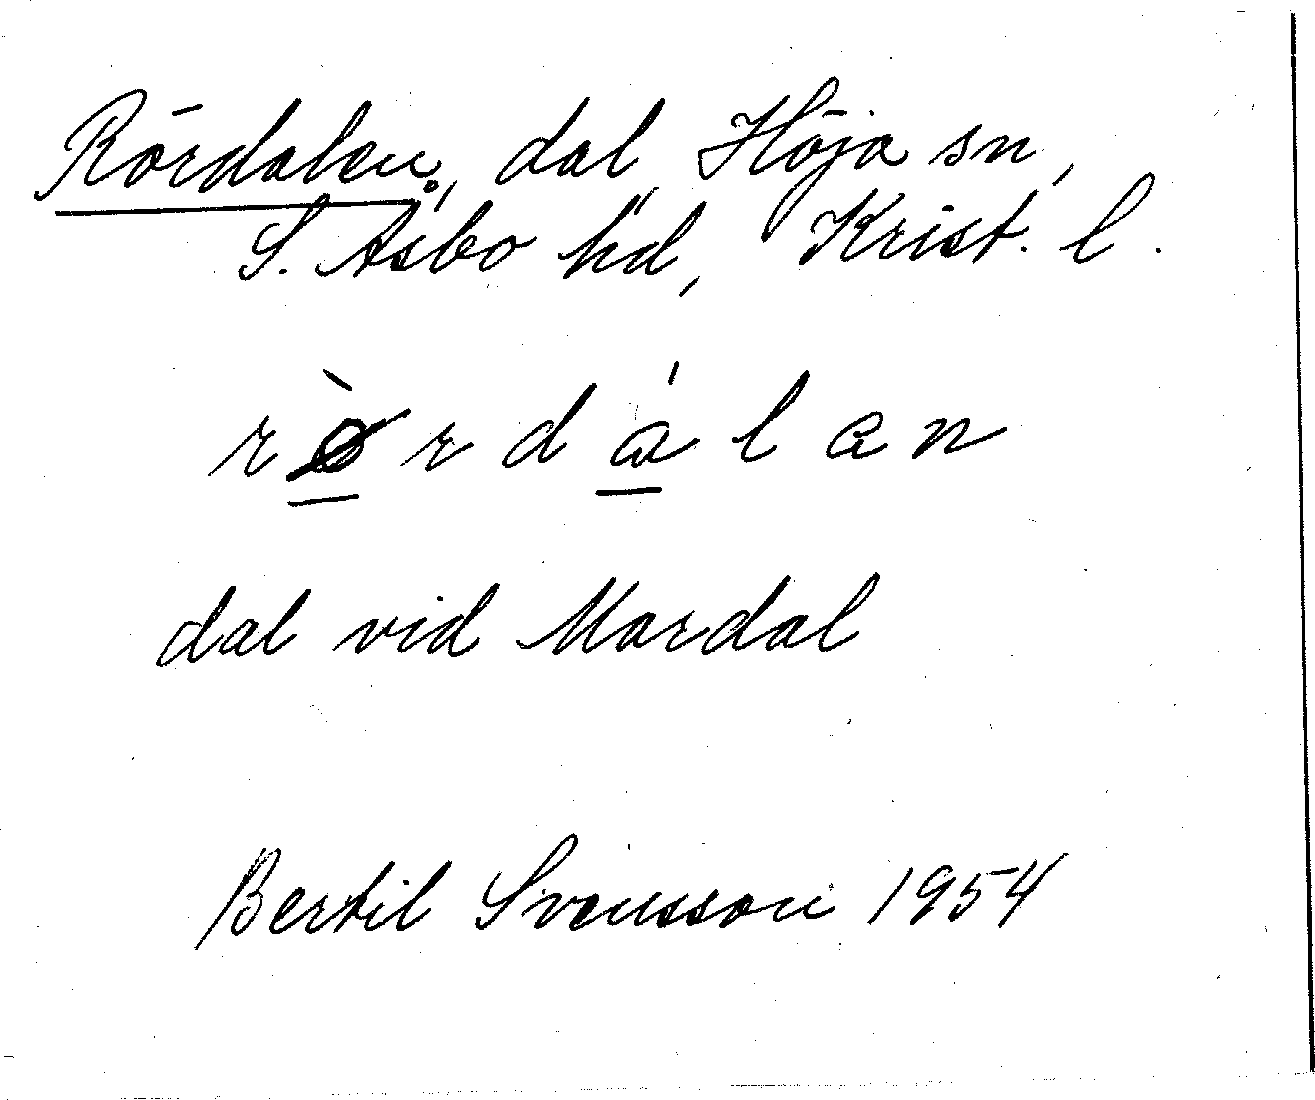 Rördalen, dal Höja sn,
S. Åsbo hd, Krist. l.
rø̀rdálan
dal vid Mardal
Bertil Svensson 1954